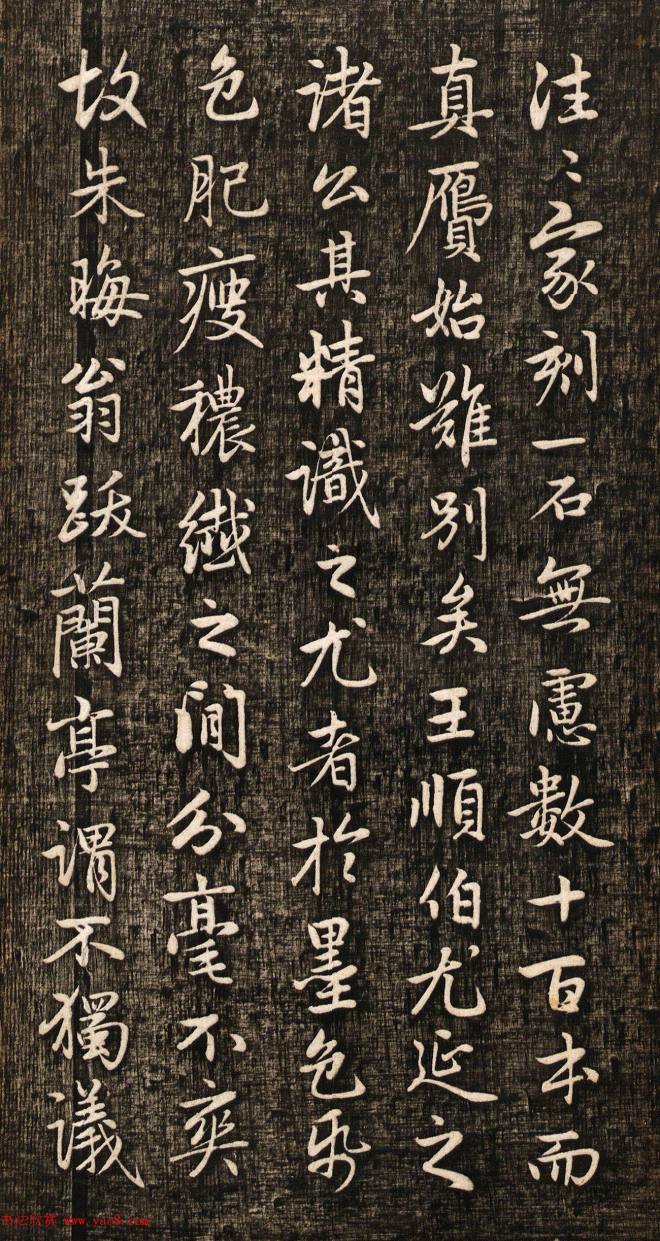 往〻家刻一石無慮數十百本而
真贗始難別矣王順伯尤延之
諸公其精識之尤者於墨色紙
色肥瘦穠纖之間分毫不爽
故朱晦翁跋蘭亭謂不獨議